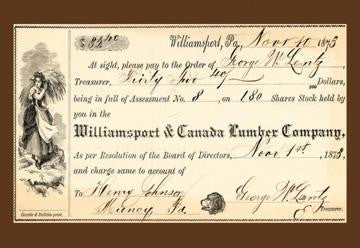 $ 32 40
Williamsport, Pa, Novr 10 1873
At sight, please pay to the Order of George W. Lentz
Treasurer, Thirty Two 40/100 Dollars,
being in full of Assessment No. 8, on 180 Shares Stock held by
you in the
Williamsport & Canada Lumber Company,
As per Resolution of the Board of Directors, Novr 1st 1873,
and charge same to account of
To Henry Johnson
George W. Lentz
Muncy Pa
Treasurer.
print.